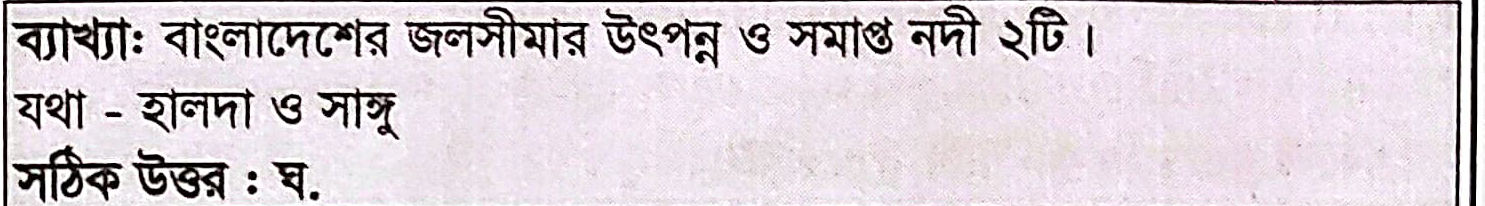 ব্যাখ্যাঃ বাংলাদেশের জলসীমার উৎপন্ন ও সমাপ্ত নদী ২টি।
যথা - হালদা ও সাঙ্গু
সঠিক উত্তর : ঘ.